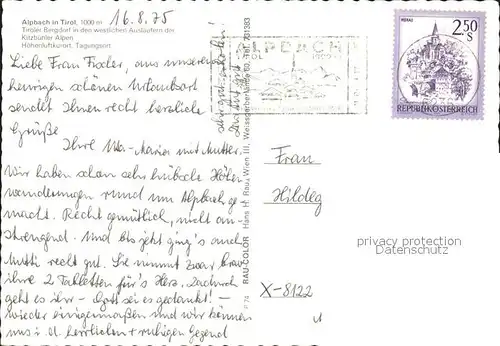 Alpbach in Tirol, 1000 m
Tiroler Bergdorf in den westlichen Ausläufern der
Kitzbühler Alpen
Höhenluftkurort, Tagungsort
16.8.75
Liebe Frau aus unserem
heurigen schönen Urlaubsort
sendet Ihnen recht herzliche
Grüße
Ihre Ida-Maria mit Mutter.
Wir haben schon sehr hübsche Höhen-
wanderungen rund um Alpbach ge-
macht. Recht gemütlich, nicht an-
strengend. Und bis jetzt ging's auch
Mutti recht gut. Sie nimmt zwar brav
ihre 2 Tabletten für's Herz. Dadurch
geht es ihr - Gott sei es gedankt! -
wieder einigermaßen und wir können
uns i. d. herrlichen + ruhigen Gegend
RAU-COLOR Hans H. Rau, Wien III, Weissgerberlände
P 74
ALPBACH
2.50 S
REPUBLIK ÖSTERREICH
Frau
Hildeg
X-8122
privacy protection
Datenschutz